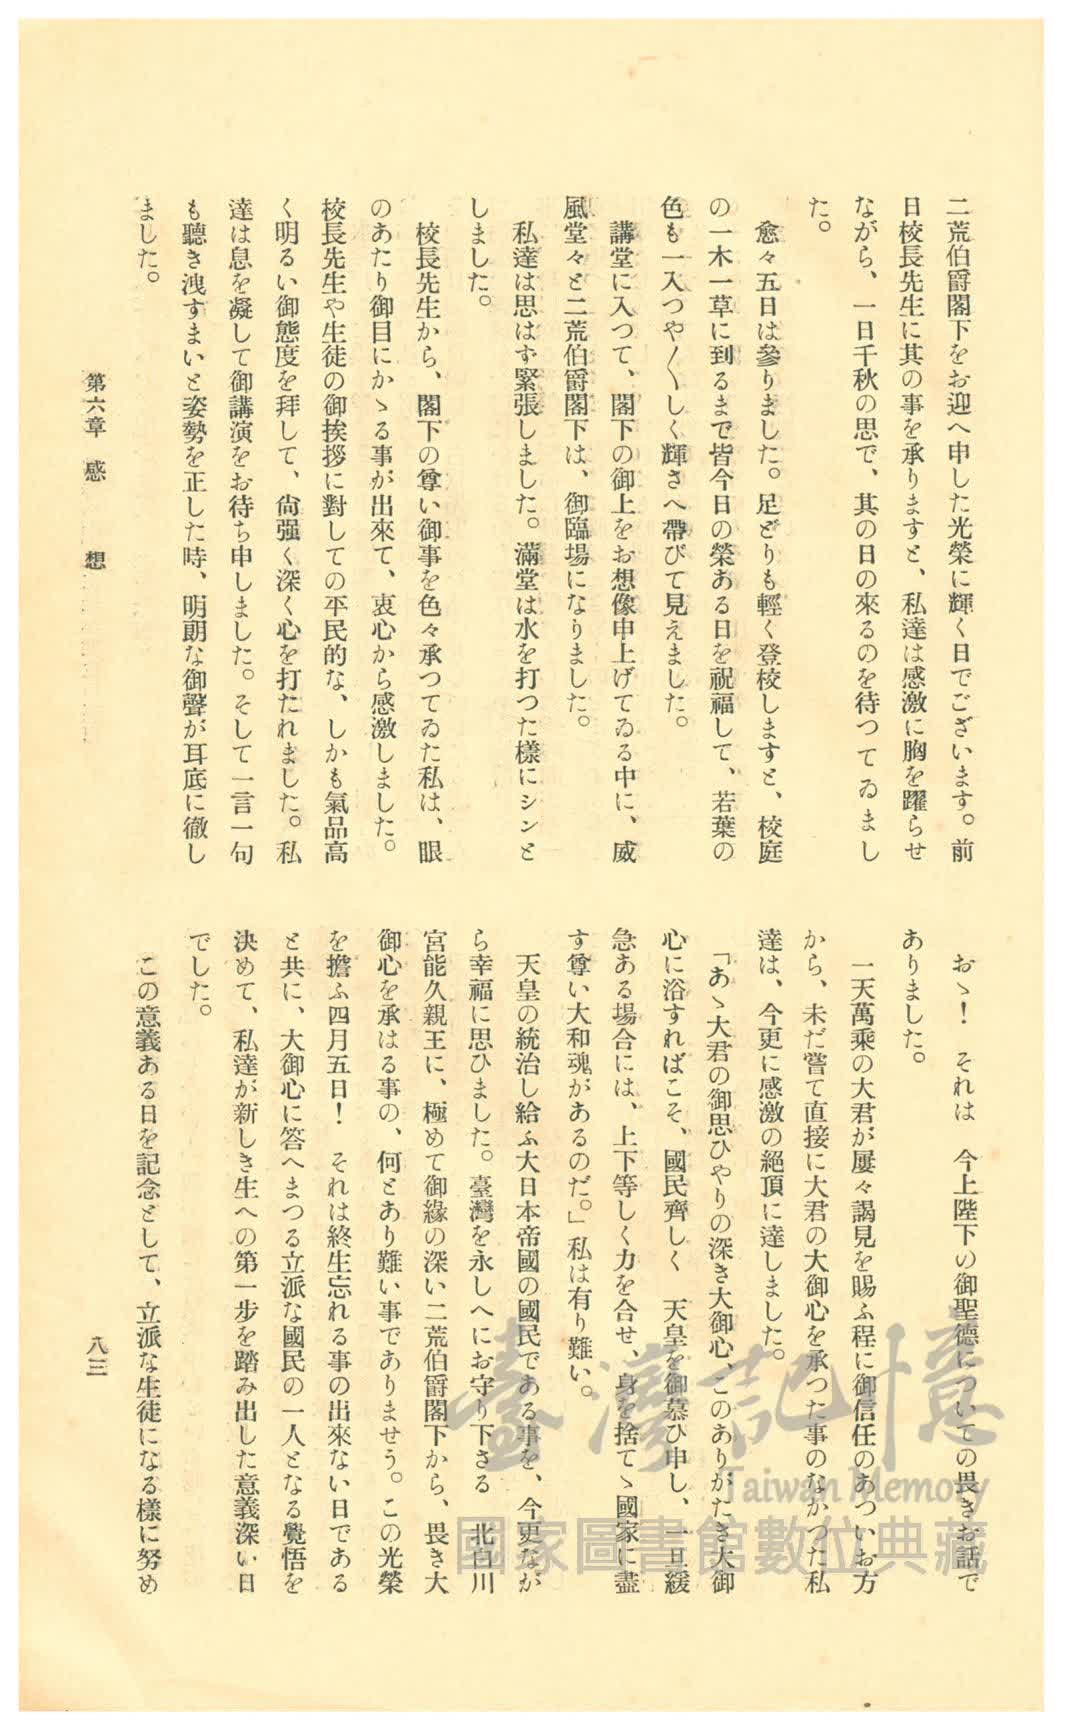 二荒伯爵閣下をお迎へ申した光榮に輝く日でございます。前
日校長先生に其の事を承りますと、私達は感激に胸を躍らせ
ながら、一日千秋の思で、其の日の來るのを待つてゐまし
た。
愈々五日は參りました。足どりも輕く登校しますと、校庭
の一木一草に到るまで皆今日の榮ある日を祝福して、若葉の
色も一入つや〳〵しく輝さへ帶びて見えました。
講堂に入つて、閣下の御上をお想像申上げてゐる中に、威
風堂々と二荒伯爵閣下は、御臨場になりました。
私達は思はず緊張しました。滿堂は水を打つた樣にシンと
しました。
校長先生から、閣下の尊い御事を色々承つてゐた私は、眼
のあたり御目にかゝる事が出來て、衷心から感激しました。
校長先生や生徒の御挨拶に對しての平民的な、しかも氣品高
く明るい御態度を拜して、尙强く深く心を打たれました。私
達は息を凝して御講演をお待ち申しました。そして一言一句
も聽き洩すまいと姿勢を正した時、明朗な御聲が耳底に徹し
ました。
おゝ！　それは　今上陛下の御聖德についての畏きお話で
ありました。
一天萬乘の大君が屢々謁見を賜ふ程に御信任のあついお方
から、未だ嘗て直接に大君の大御心を承つた事のなかつた私
達は、今更に感激の絕頂に達しました。
「あゝ大君の御思ひやりの深き大御心、このありがたき大御
心に浴すればこそ、國民齊しく　天皇を御慕ひ申し、一旦緩
急ある場合には、上下等しく力を合せ、身を捨てゝ國家に盡
す尊い大和魂があるのだ。」私は有り難い。
天皇の統治し給ふ大日本帝國の國民である事を、今更なが
ら幸福に思ひました。臺灣を永しへにお守り下さる　北白川
宮能久親王に、極めて御緣の深い二荒伯爵閣下から、畏き大
御心を承はる事の、何とあり難い事でありませう。この光榮
を擔ふ四月五日！　それは終生忘れる事の出來ない日である
と共に、大御心に答へまつる立派な國民の一人となる覺悟を
決めて、私達が新しき生への第一步を踏み出した意義深い日
でした。
この意義ある日を記念として、立派な生徒になる樣に努め
第六章　感　想
八三
臺灣記憶
Taiwan Memory
國家圖書館數位典藏